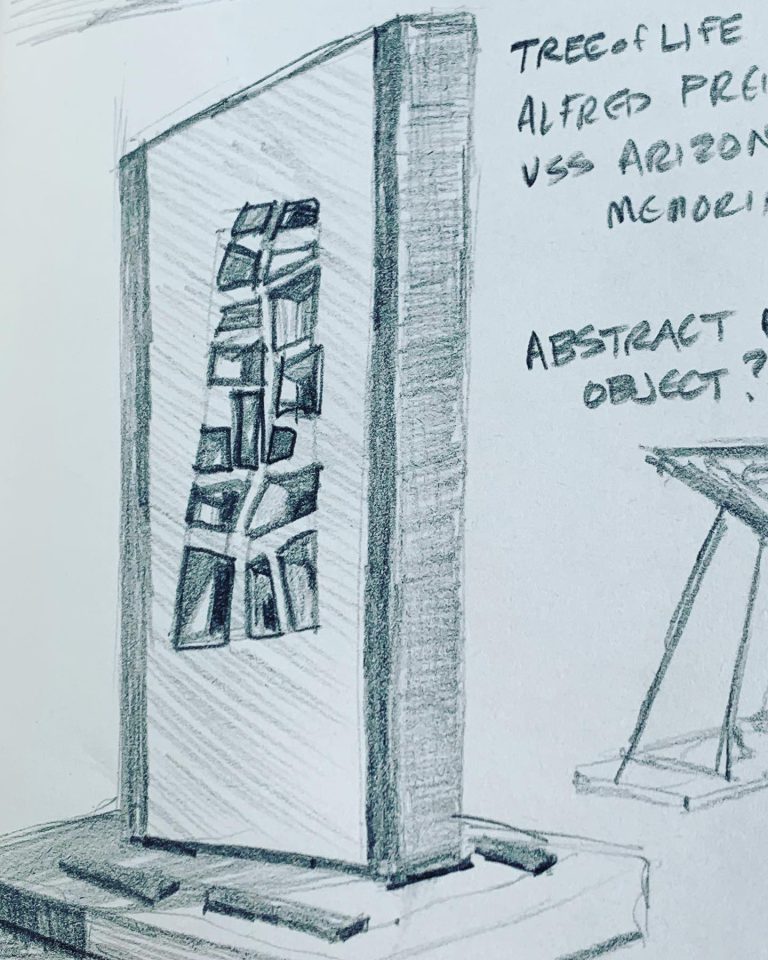 TREE of LIFE
ALFRED PREI
USS ARIZON
MEMORI
ABSTRACT
OBJECT?